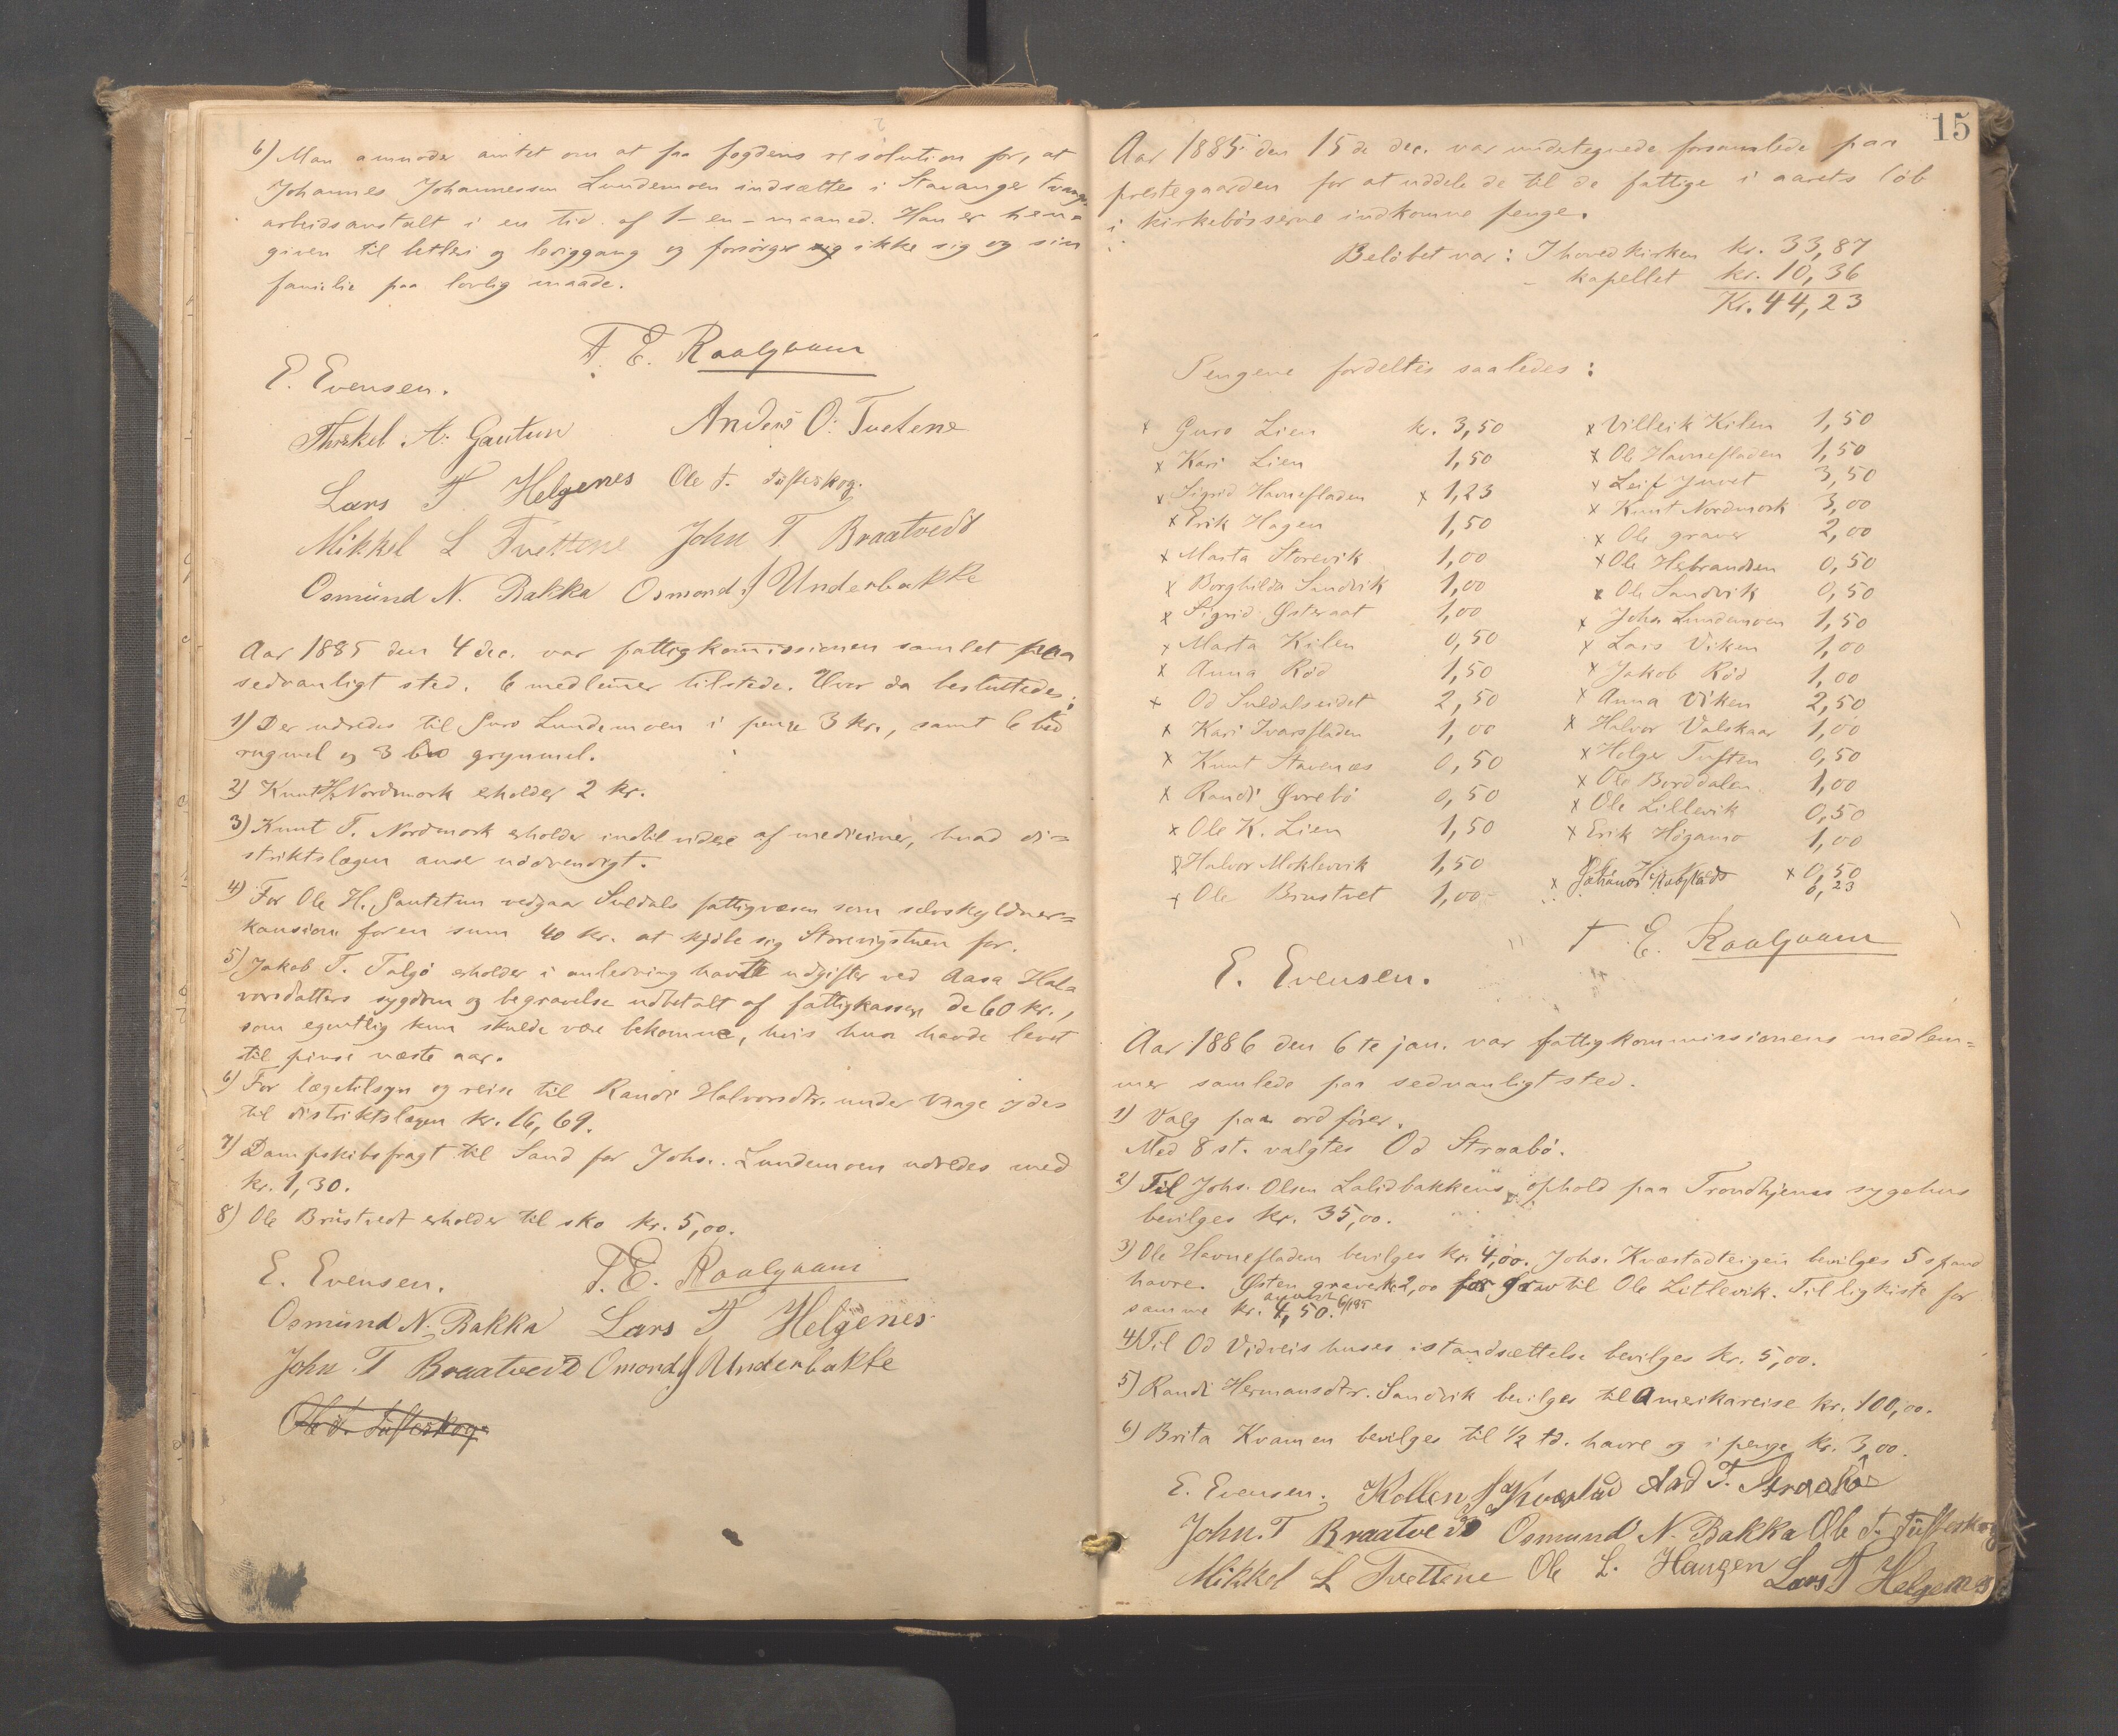 6) Man anmoder amtet om at faa fogdens resolution for, at
Johannes Johannessen Lundemoen indsættes i Stavanger tvangs
arbeidsanstalt i en tid af 1 - en - maaned. Han er hen=
given til betleri og lediggang og forsörger ikke sig og sin
familie paa lovlig maade.
T. E. Raalgaam
E. Evensen.
Thorkel A. Gautun Anders O. Tvetene
Lars T Helgenes Ole T. Tüfteskog.
Mikkel L Tvettene John T Braatvedt
Osmünd N. Bakka Osmond J Underbakke
Aar 1885 den 4 dec. var fattigkommissionen samlet paa
sedvanligt sted. 6 medlemmer tilstede. Hvor da besluttedes:
1) Der udredes til Guro Lundemoen i penge 3 kr., samt 6
rugmel og 3 grynmel.
2) Knut H. Nordmork erholder 2 kr.
3) Knut T. Nordmork erholder indtil videre af mediciner, hvad di=
striktslægen anser nödvendigt.
4) For Ole H. Gautetun vedgaar Suldals fattigvæsen som selvskyldner=
kaution for en sum 40 kr. at kjöbe sig Storevigstuen for.
5) Jakob T. Taljö erholder i anledning havte udgifter ved Aasa Hal=
vorsdatters sygdom og begravelse udbetalt af fattigkassen de 60 kr.,
som egentlig kun skulde være bekomne, hvis hun havde levet
til pinse næste aar.
6) For lægetilsyn og reise til Randi Halvorsdtr. under Vaage ydes
til distriktslægen kr. 16,69.
7) Dampskibsfragt til Sand for Johs. Lundemoen udredes med
kr. 1,30.
8) Ole Brüstvedt erholder til sko kr. 5,00.
E. Evensen. T. E. Raalgaam
Osmünd N. Bakka Lars T Helgenes
John T Braatvedt Omond J Underbakke
Ole T. Tüfteskog
15
Aar 1885 den 15de dec. var undetegnede forsamlede paa
prestegaarden for at uddele de til de fattige i aarets löb
i kirkebösserne indkomne penge.
Belöbet var: I hovedkirken kr. 33,87
- kapellet kr. 10,36
Kr. 44,23
Pengene fordeltes saaledes:
x Guro Lien kr. 3,50 x Villeik Kilen 1,50
x Kari Lien 1,50 x Ole Havnefladen 1,50
x Sigrid Havnefladen x 1,23 x Leif Juvet 3,50
x Erik Hagen 1,50 x Knut Nordmork 3,00
x Marta Storevik 1,00 x Ole graver 2,00
x Borghilda Sandvik 1,00 x Ole Herbrandsen 0,50
x Sigrid Østeraat 1,00 x Ole Sandvik 0,50
x Marta Kilen 0,50 x Johs Lundemoen 1,50
x Anna Röd 1,50 x Lars Viken 1,00
x Od Suldalseidet 2,50 x Jakob Röd 1,00
x Kari Ivarsfladen 1,00 x Anna Viken 2,50
x Knut Stavenæs 0,50 x Halvor Valskaar 1,00
x Randi Øvrebö 0,50 x Helger Tuften 0,50
x Ole K. Lien 1,50 x Ole Borddalen 1,00
x Halvor Moklevik 1,50 x Ole Lillevik 0,50
x Ole Brustvet 1,00 x Erik Högamo 1,00
x x 0,50
0,23
T. E. Raalgaam
E. Evensen.
Aar 1886 den 6te jan. var fattigkommissionens medlem=
mer samlede paa sedvanligt sted.
1) Valg paa ordförer.
Med 8 st. valgtes Od Straabö.
2) Til Johs. Olsen Lalidbakkens ophold paa Trondhjems sygehus
bevilges kr. 35,00.
3) Ole Havnefladen bevilges kr. 4,00. Johs. Kvæstadteigen bevilges 5 spand
havre. Østen graver kr. 2,00 for grav til Ole Litlevik. Til ligkiste for
samme kr. 4,50.
4) Til Od Vidveis huses istandsættelse bevilges kr. 5,00.
5) Randi Hermansdtr. Sandvik bevilges til Amerikareise kr. 100,00.
6) Brita Kvamen bevilges til 1/2 td. havre og i penge kr. 3,00.
E. Evensen. Kolben J Kvæstad Aad T. Straabö
John. T Braatvedt Osmund N. Bakka Ole T. Tüfteskog
Mikkel L Tvettene Ole L. Haugen Lars T Helgenes